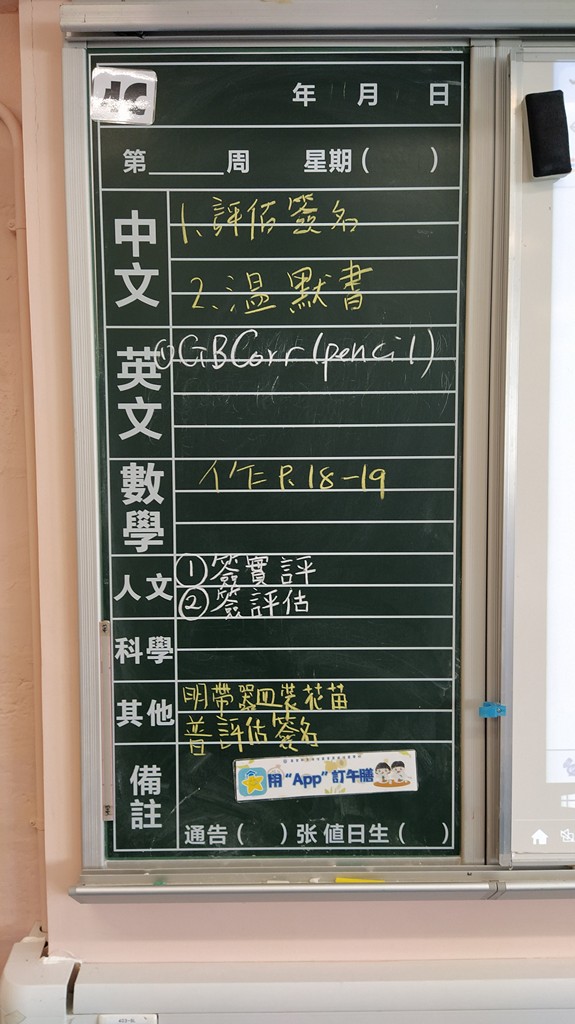 4C
年 月 日
第____周 星期( )
中文
1. 評估簽名
2. 溫默書
英文
① GBCorr (pencil)
數學
作 P. 18-19
人文
① 簽實評
② 簽評估
科學
其他
明帶器皿裝花苗
普評估簽名
備註
用“App”訂午膳
通告( )张 值日生( )